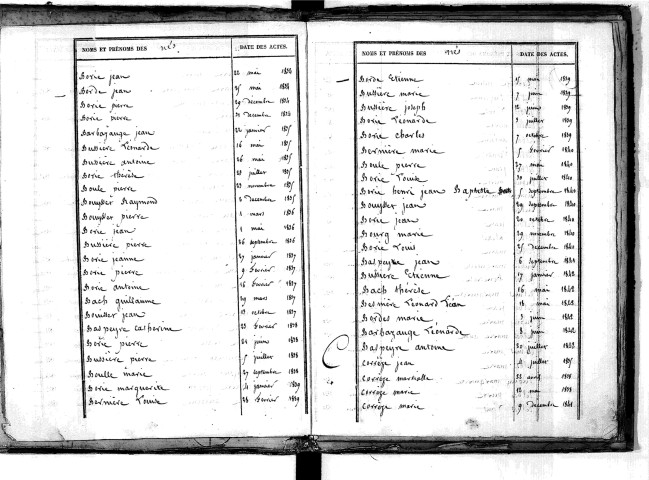 NOMS ET PRÉNOMS DES nés DATE DES ACTES.
Borie jean 22 mai
Borde jean 25 mai
Borie pierre 29 decembre
Borie pierre decembre
Barbazange jean 22 janvier 1835
Bussière Léonarde 16 mai 1835
Bussière antoine 26 mai 1835
Borie thérèse juillet 1835
Boule pierre 23 novembre 1835
Bouysset Raymond 2 decembre 1835
Bouysset pierre 1 mars 1836
Borie jean 1 mai 1836
Bussière pierre 26 septembre 1836
Borie jeanne 27 janvier 1837
Borie pierre 9 fevrier 1837
Borie antoine 16 fevrier 1837
Bach guillaume 29 mars 1837
Bouillet jean octobre 1837
Baspeyre catherine 23 fevrier 1838
Borie pierre 24 juin 1838
Bussière pierre 5 juillet 1838
Boulle marie 27 septembre 1838
Borie marguerite 4 janvier 1839
Bernière Louise 28 fevrier 1839
NOMS ET PRÉNOMS DES nés DATE DES ACTES.
Borde Etienne 15 mai 1839
Bussière marie 7 juin 1839
Bussière joseph 12 juin 1839
Borie Léonarde 3 juillet 1839
Borie charles 7 octobre 1839
Bernière marie 5 fevrier 1840
Boule pierre 27 mai 1840
Borie Louise 20 juillet 1840
Borie henri jean Baptiste 5 septembre 1840
Bouysset jean 29 septembre 1840
Borie jean 20 octobre 1840
Bourg marie 29 novembre 1840
Borie Louis 25 decembre 1840
Baspeyre jean 6 septembre 1841
Bussière Etienne 17 janvier 1842
Bach thérèse 16 mai 1842
Besnière Léonard Léon 18 mai 1842
Bordes marie 3 juin 1842
Barbazange Léonarde 8 juin 1842
Baspeyre antoine 20 juillet 1842
C
Corrèze jean 4 juillet 1835
Corrèze martialle 22 avril 1838
Corrèze marie 12 mai 1838
Corrèze marie 9 decembre 1841